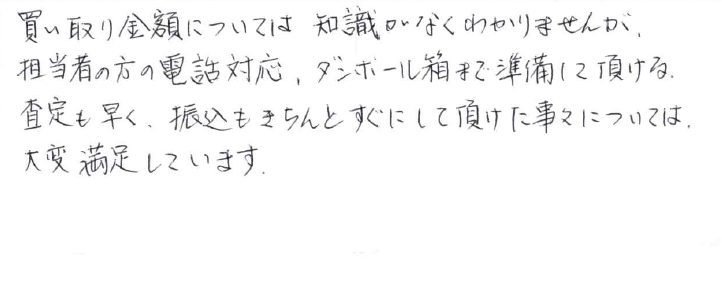 買い取り金額については 知識がなくわかりませんが、
担当者の方の電話対応、ダンボール箱まで準備して頂ける。
査定も早く、振込もきちんとすぐにして頂けた事々については、
大変満足しています。